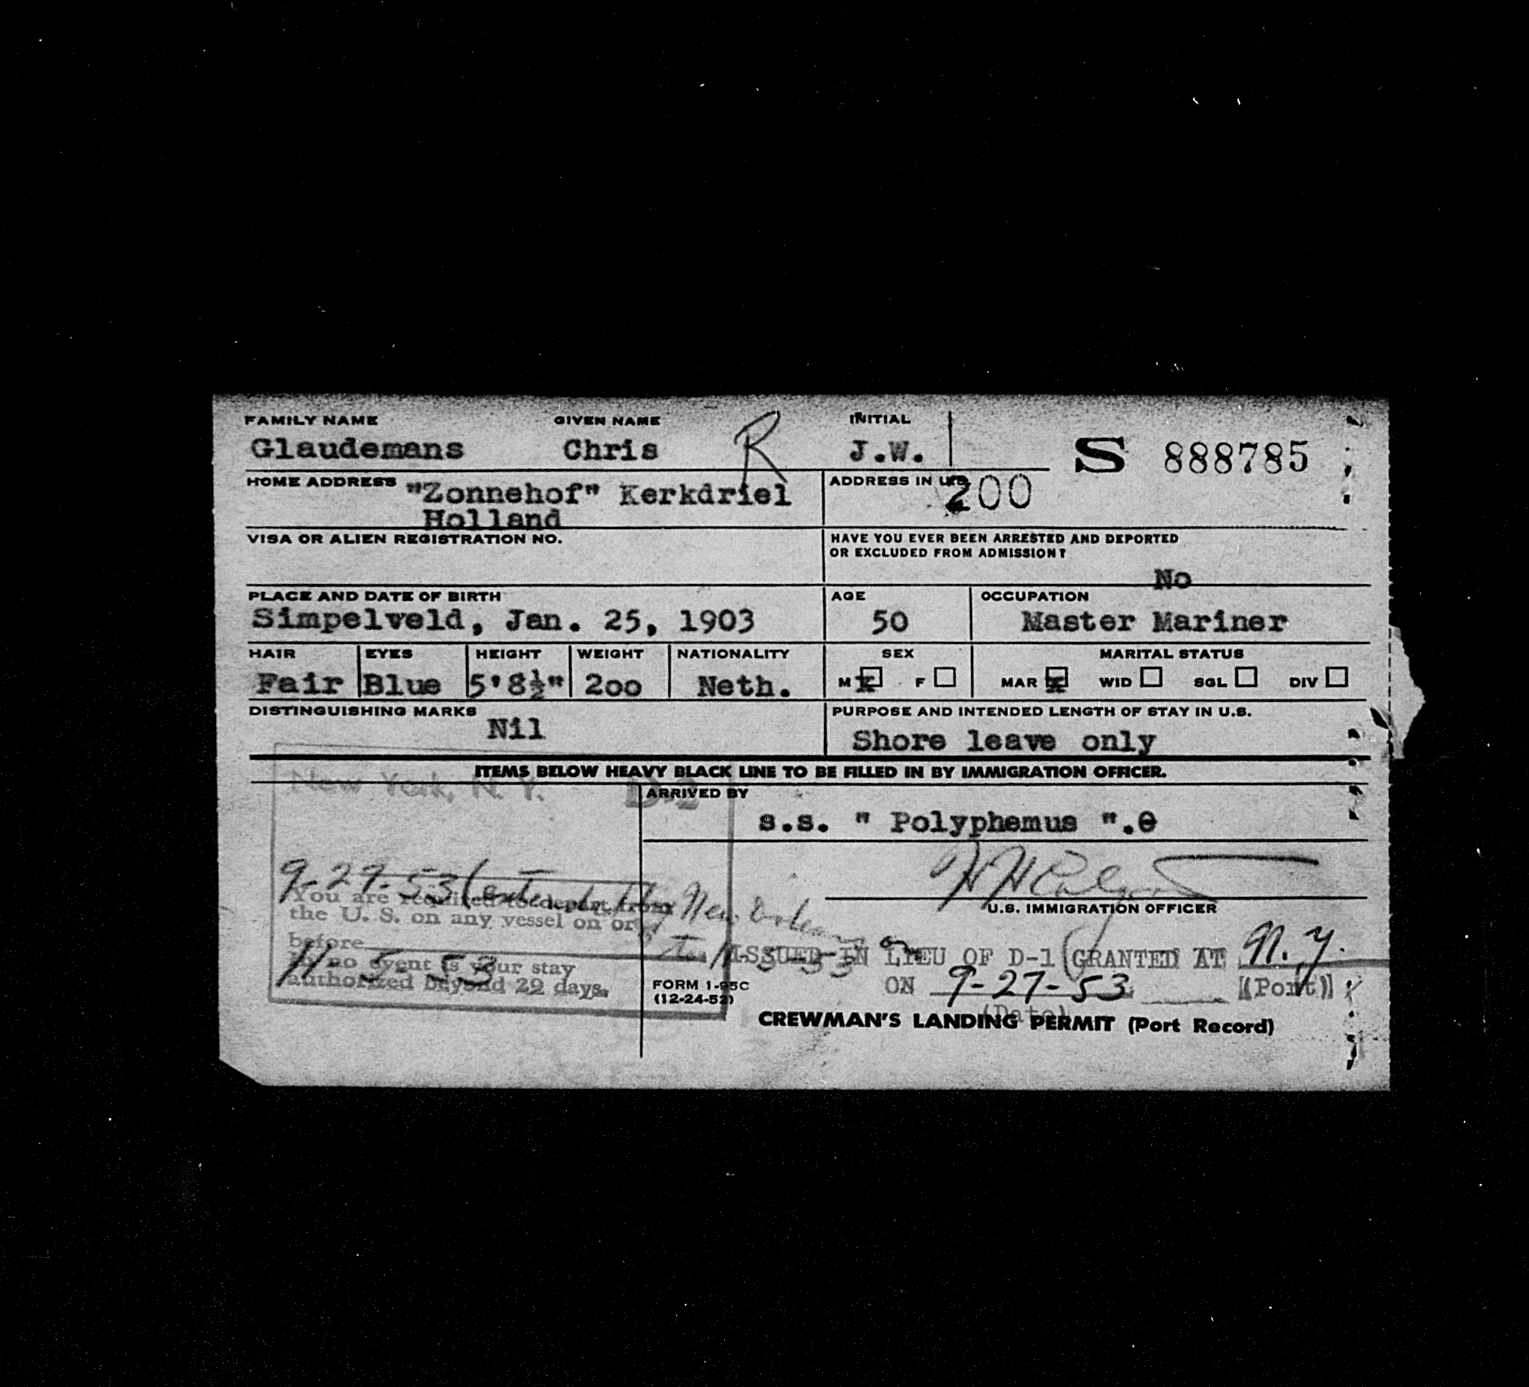 FAMILY NAME GIVEN NAME INITIAL
Glaudemans Chris R J.W. S 888785
HOME ADDRESS "Zonnehof" Kerkdriel ADDRESS IN U.S. 200
Holland
VISA OR ALIEN REGISTRATION NO. HAVE YOU EVER BEEN ARRESTED AND DEPORTED
OR EXCLUDED FROM ADMISSION?
No
PLACE AND DATE OF BIRTH AGE OCCUPATION
Simpelveld, Jan. 25, 1903 50 Master Mariner
HAIR EYES HEIGHT WEIGHT NATIONALITY SEX MARITAL STATUS
Fair Blue 5'8½" 200 Neth. M x F MAR x WID SGL DIV
DISTINGUISHING MARKS PURPOSE AND INTENDED LENGTH OF STAY IN U.S.
Nil Shore leave only
ITEMS BELOW HEAVY BLACK LINE TO BE FILLED IN BY IMMIGRATION OFFICER.
New York, N. Y. D-2 ARRIVED BY
s.s. " Polyphemus ".
9-27-53 (extended by New Orleans
You are required to depart from
the U. S. on any vessel on or
before
11-5-53
In no event is your stay
authorized beyond 29 days.
to 11-5-53
U.S. IMMIGRATION OFFICER
ISSUED IN LIEU OF D-1 GRANTED AT N.Y.
ON 9-27-53 (Port)
(Date)
FORM 1-95C
(12-24-52)
CREWMAN'S LANDING PERMIT (Port Record)